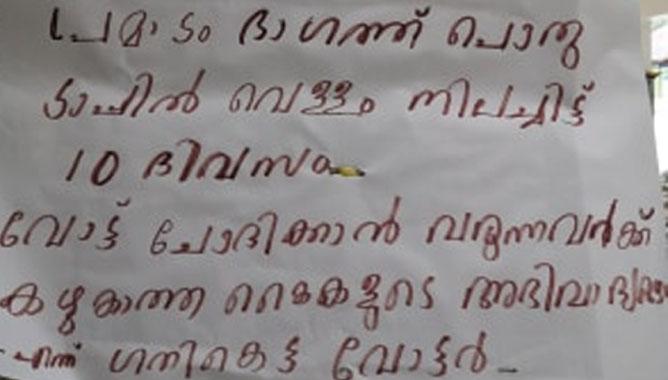 പ്രമാടം ഭാഗത്ത് പൊതു
ടാപ്പിൽ വെള്ളം നിലച്ചിട്ട്
10 ദിവസം
വോട്ട് ചോദിക്കാൻ വരുന്നവർക്ക്
കഴുകാത്ത കൈകളുടെ അഭിവാദ്യങ്ങൾ
- എന്ന് ഗതികെട്ട വോട്ടർ -